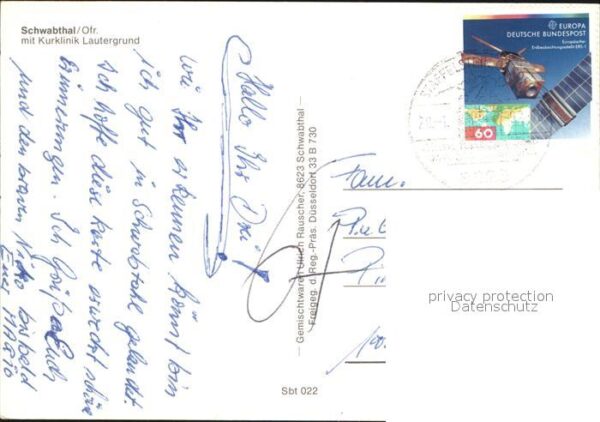 Schwabthal/Ofr.
mit Kurklinik Lautergrund
Hallo Ihr Drei!
Wie Ihr erkennen könnt bin
ich gut in Schwabthal gelandet.
Ich hoffe diese Karte erweckt schöne
Erinnerungen. Ich Grüße Euch
und den braven Niko bis bald
Euer Mario
Gemischtwaren Ulrich Rauscher, 8623 Schwabthal
Freigeg. d. Reg.-Präs. Düsseldorf 33 B 730
Sbt 022
EUROPA
DEUTSCHE BUNDESPOST
Europäischer
Erdbeobachtungssatellit ERS-1
60
Fam.
privacy protection
Datenschutz